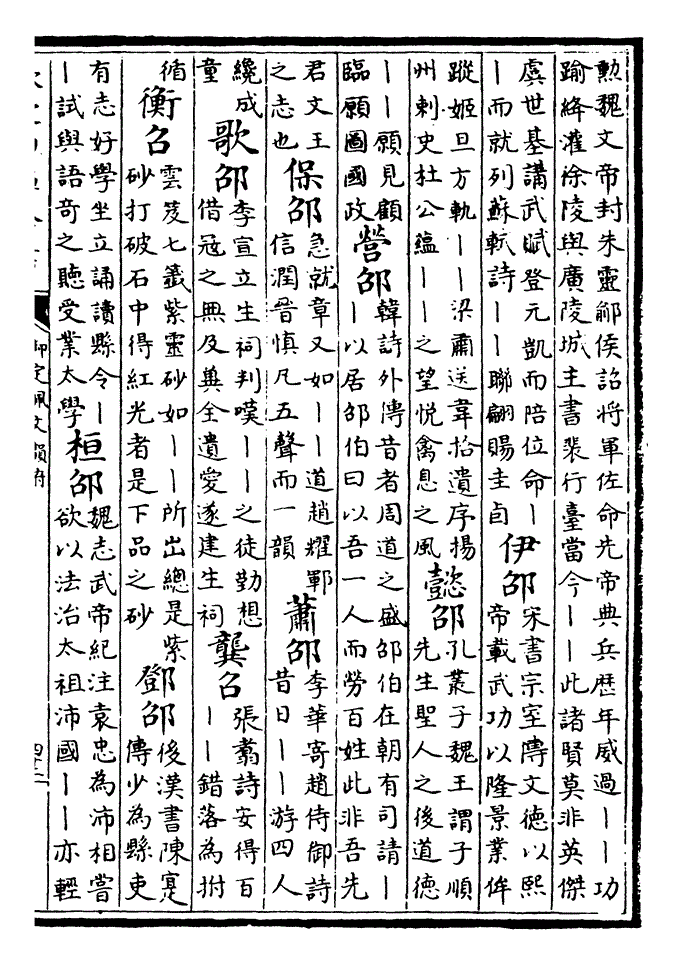 勲魏文帝封朱靈鄃侯詔將軍佐命先帝典兵歴年威過――功
踰絳灌徐陵與廣陵城主書裴行臺當今――此諸賢莫非英傑
虞世基講武賦登元凱而陪位命―
―而就列蘇軾詩――聯翩賜圭卣
伊邵
宋書宗室傳文德以熙
帝載武功以隆景業侔
蹤姬旦方軌――梁肅送韋拾遺序揚
州刺史杜公蘊――之望悦禽息之風
懿邵
孔叢子魏王謂子順
先生聖人之後道德
――願見顧
臨願圖國政
營邵
韓詩外傳昔者周道之盛邵伯在朝有司請―
―以居邵伯曰以吾一人而勞百姓此非吾先
君文王
之志也
保邵
急就章又如――道趙耀鄲
信潤晉慎凡五聲而一韻
蕭邵
李華寄趙侍御詩
昔日――游四人
纔成
童
歌邵
李宣立生祠判嘆――之徒勤想
借冦之無及冀全遺愛遂建生祠
龔召
張翥詩安得百
――錯落為拊
循
衡召
雲笈七籖紫靈砂如――所出總是紫
砂打破石中得紅光者是下品之砂
鄧邵
後漢書陳寔
傳少為縣吏
有志好學坐立誦讀縣令―
―試與語奇之聽受業太學
桓邵
魏志武帝紀注袁忠為沛相嘗
欲以法治太祖沛國――亦輕
御定佩文韻府